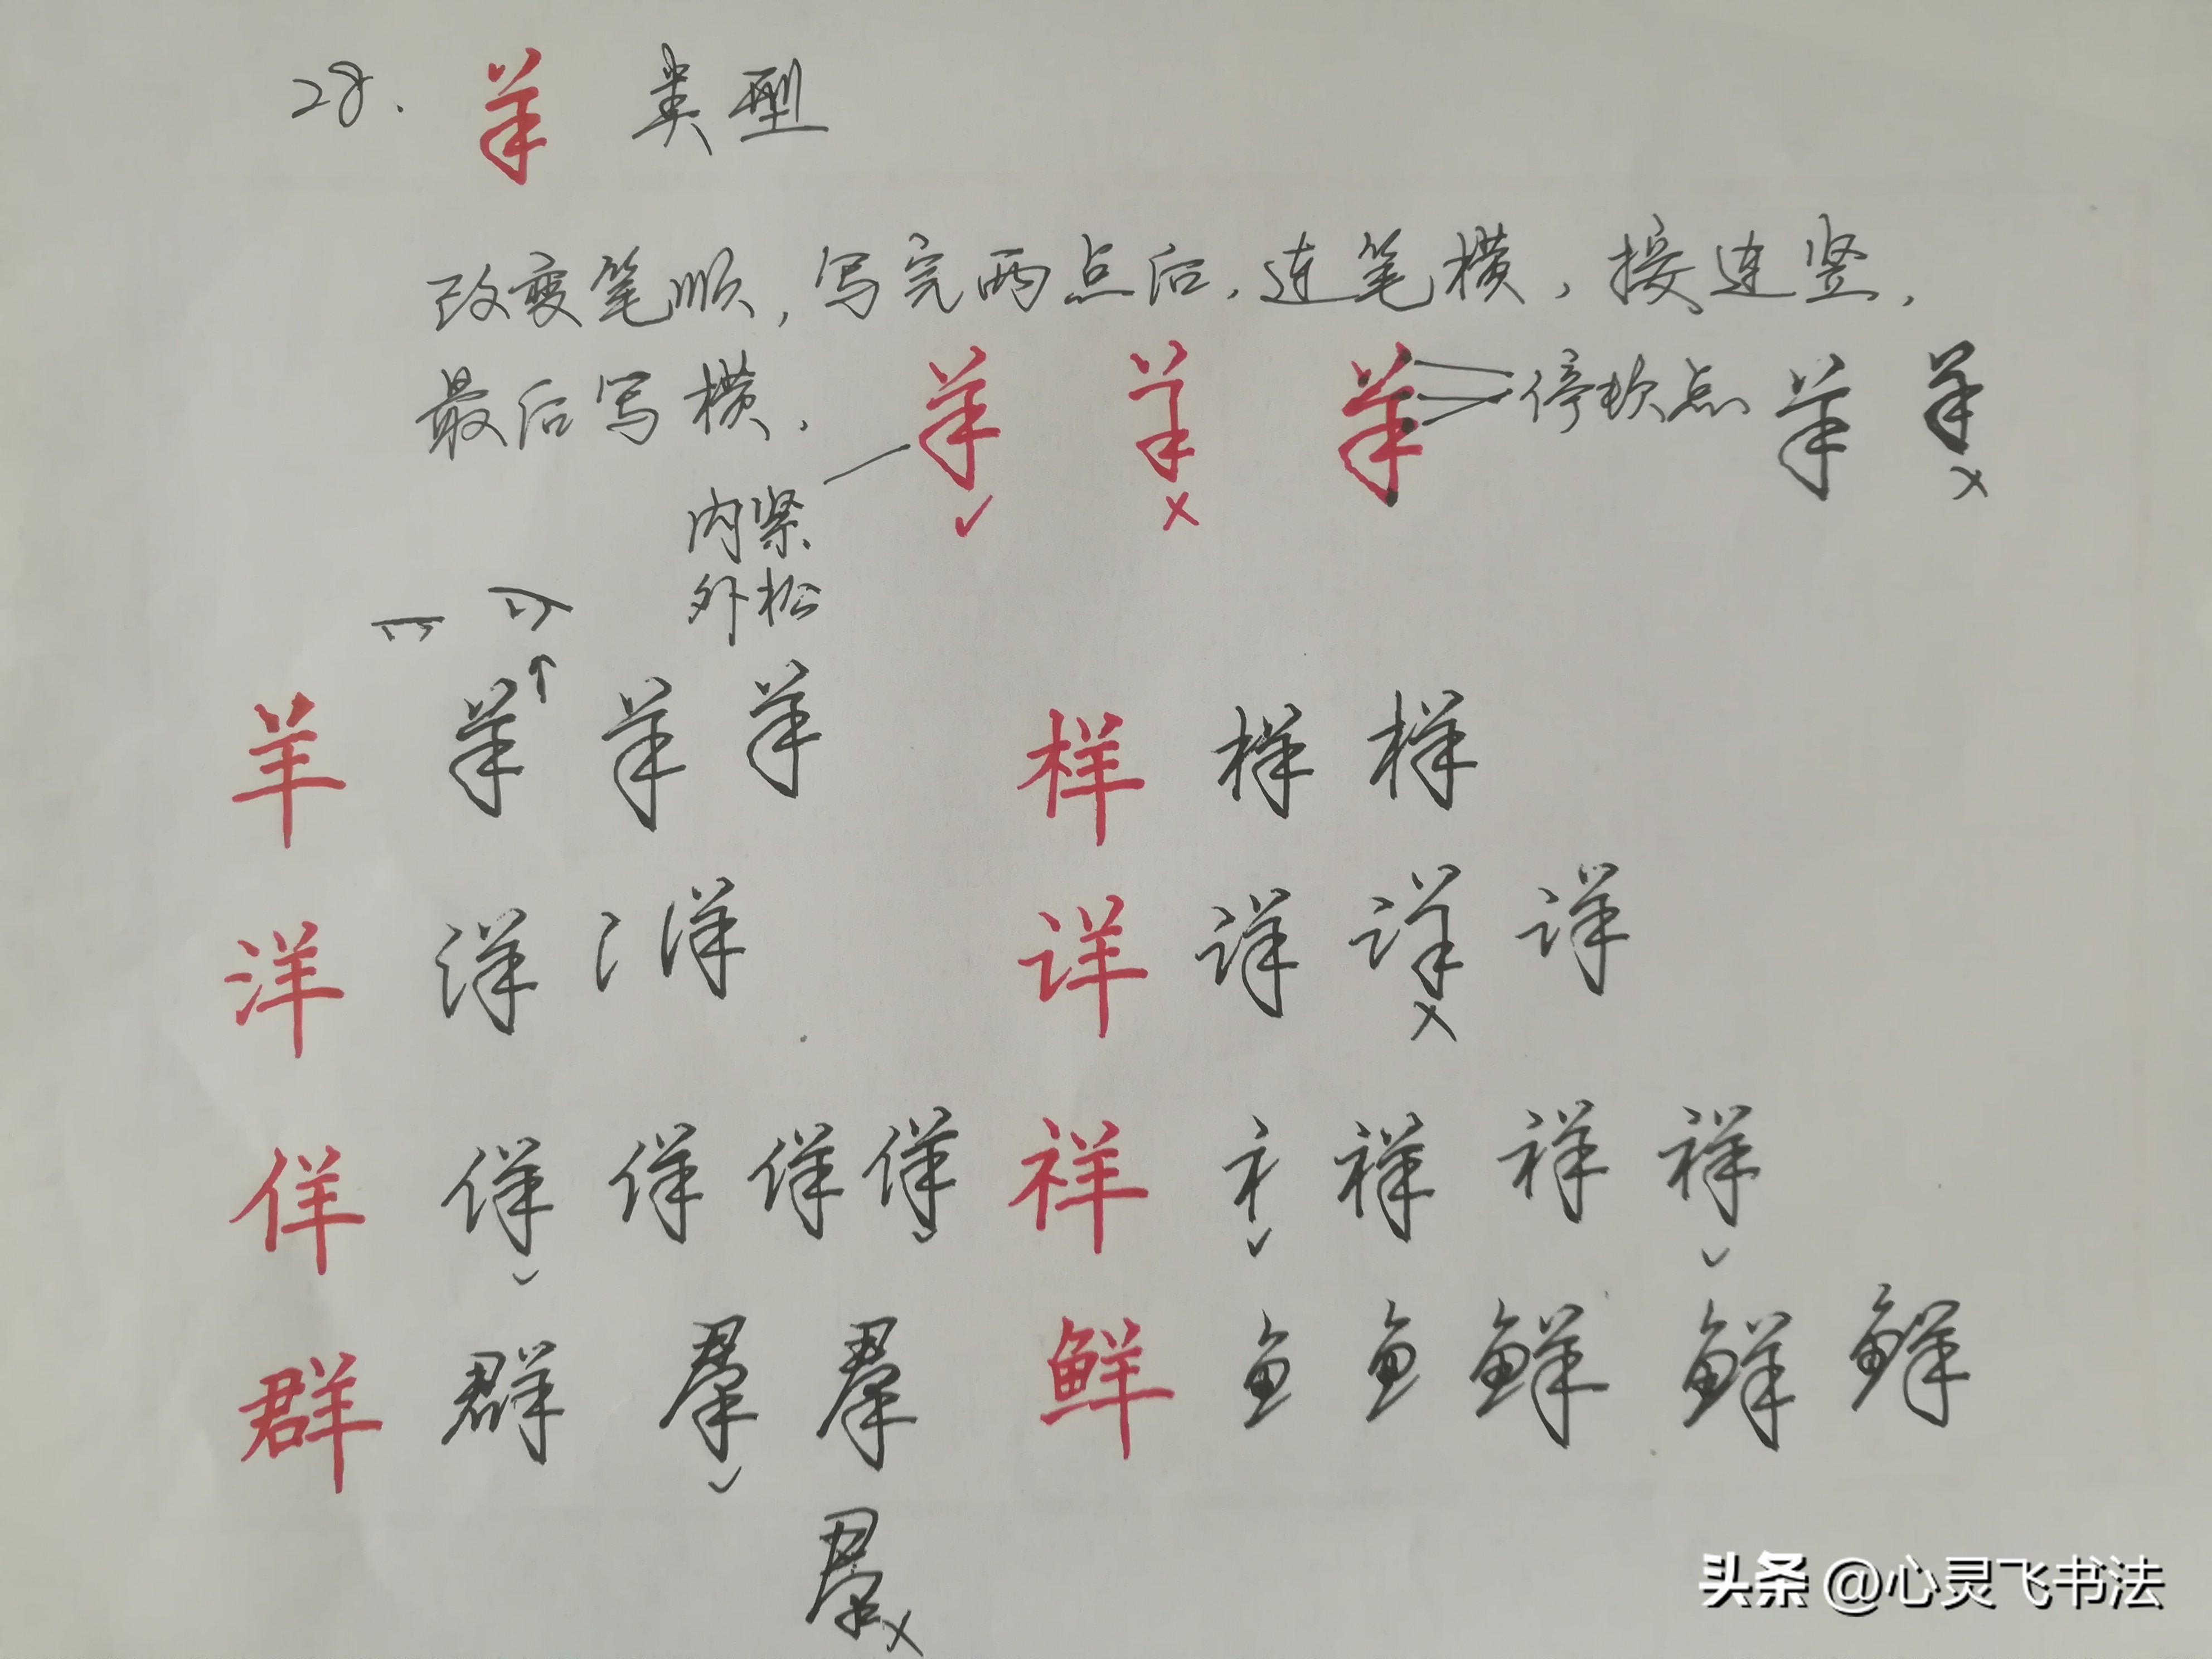 28. 羊 类型
改变笔顺，写完两点后，连笔横，接连竖，
最后写横. 羊 羊 羊 停顿点 羊 羊
内紧
外松
羊 羊 羊 羊 样 样 样
洋 洋 氵 洋 详 详 详 详
佯 佯 佯 佯 佯 祥 礻 祥 祥 祥
群 群 羣 羣 鲜 鱼 鱼 鲜 鲜 鲜
羣
头条 @心灵飞书法